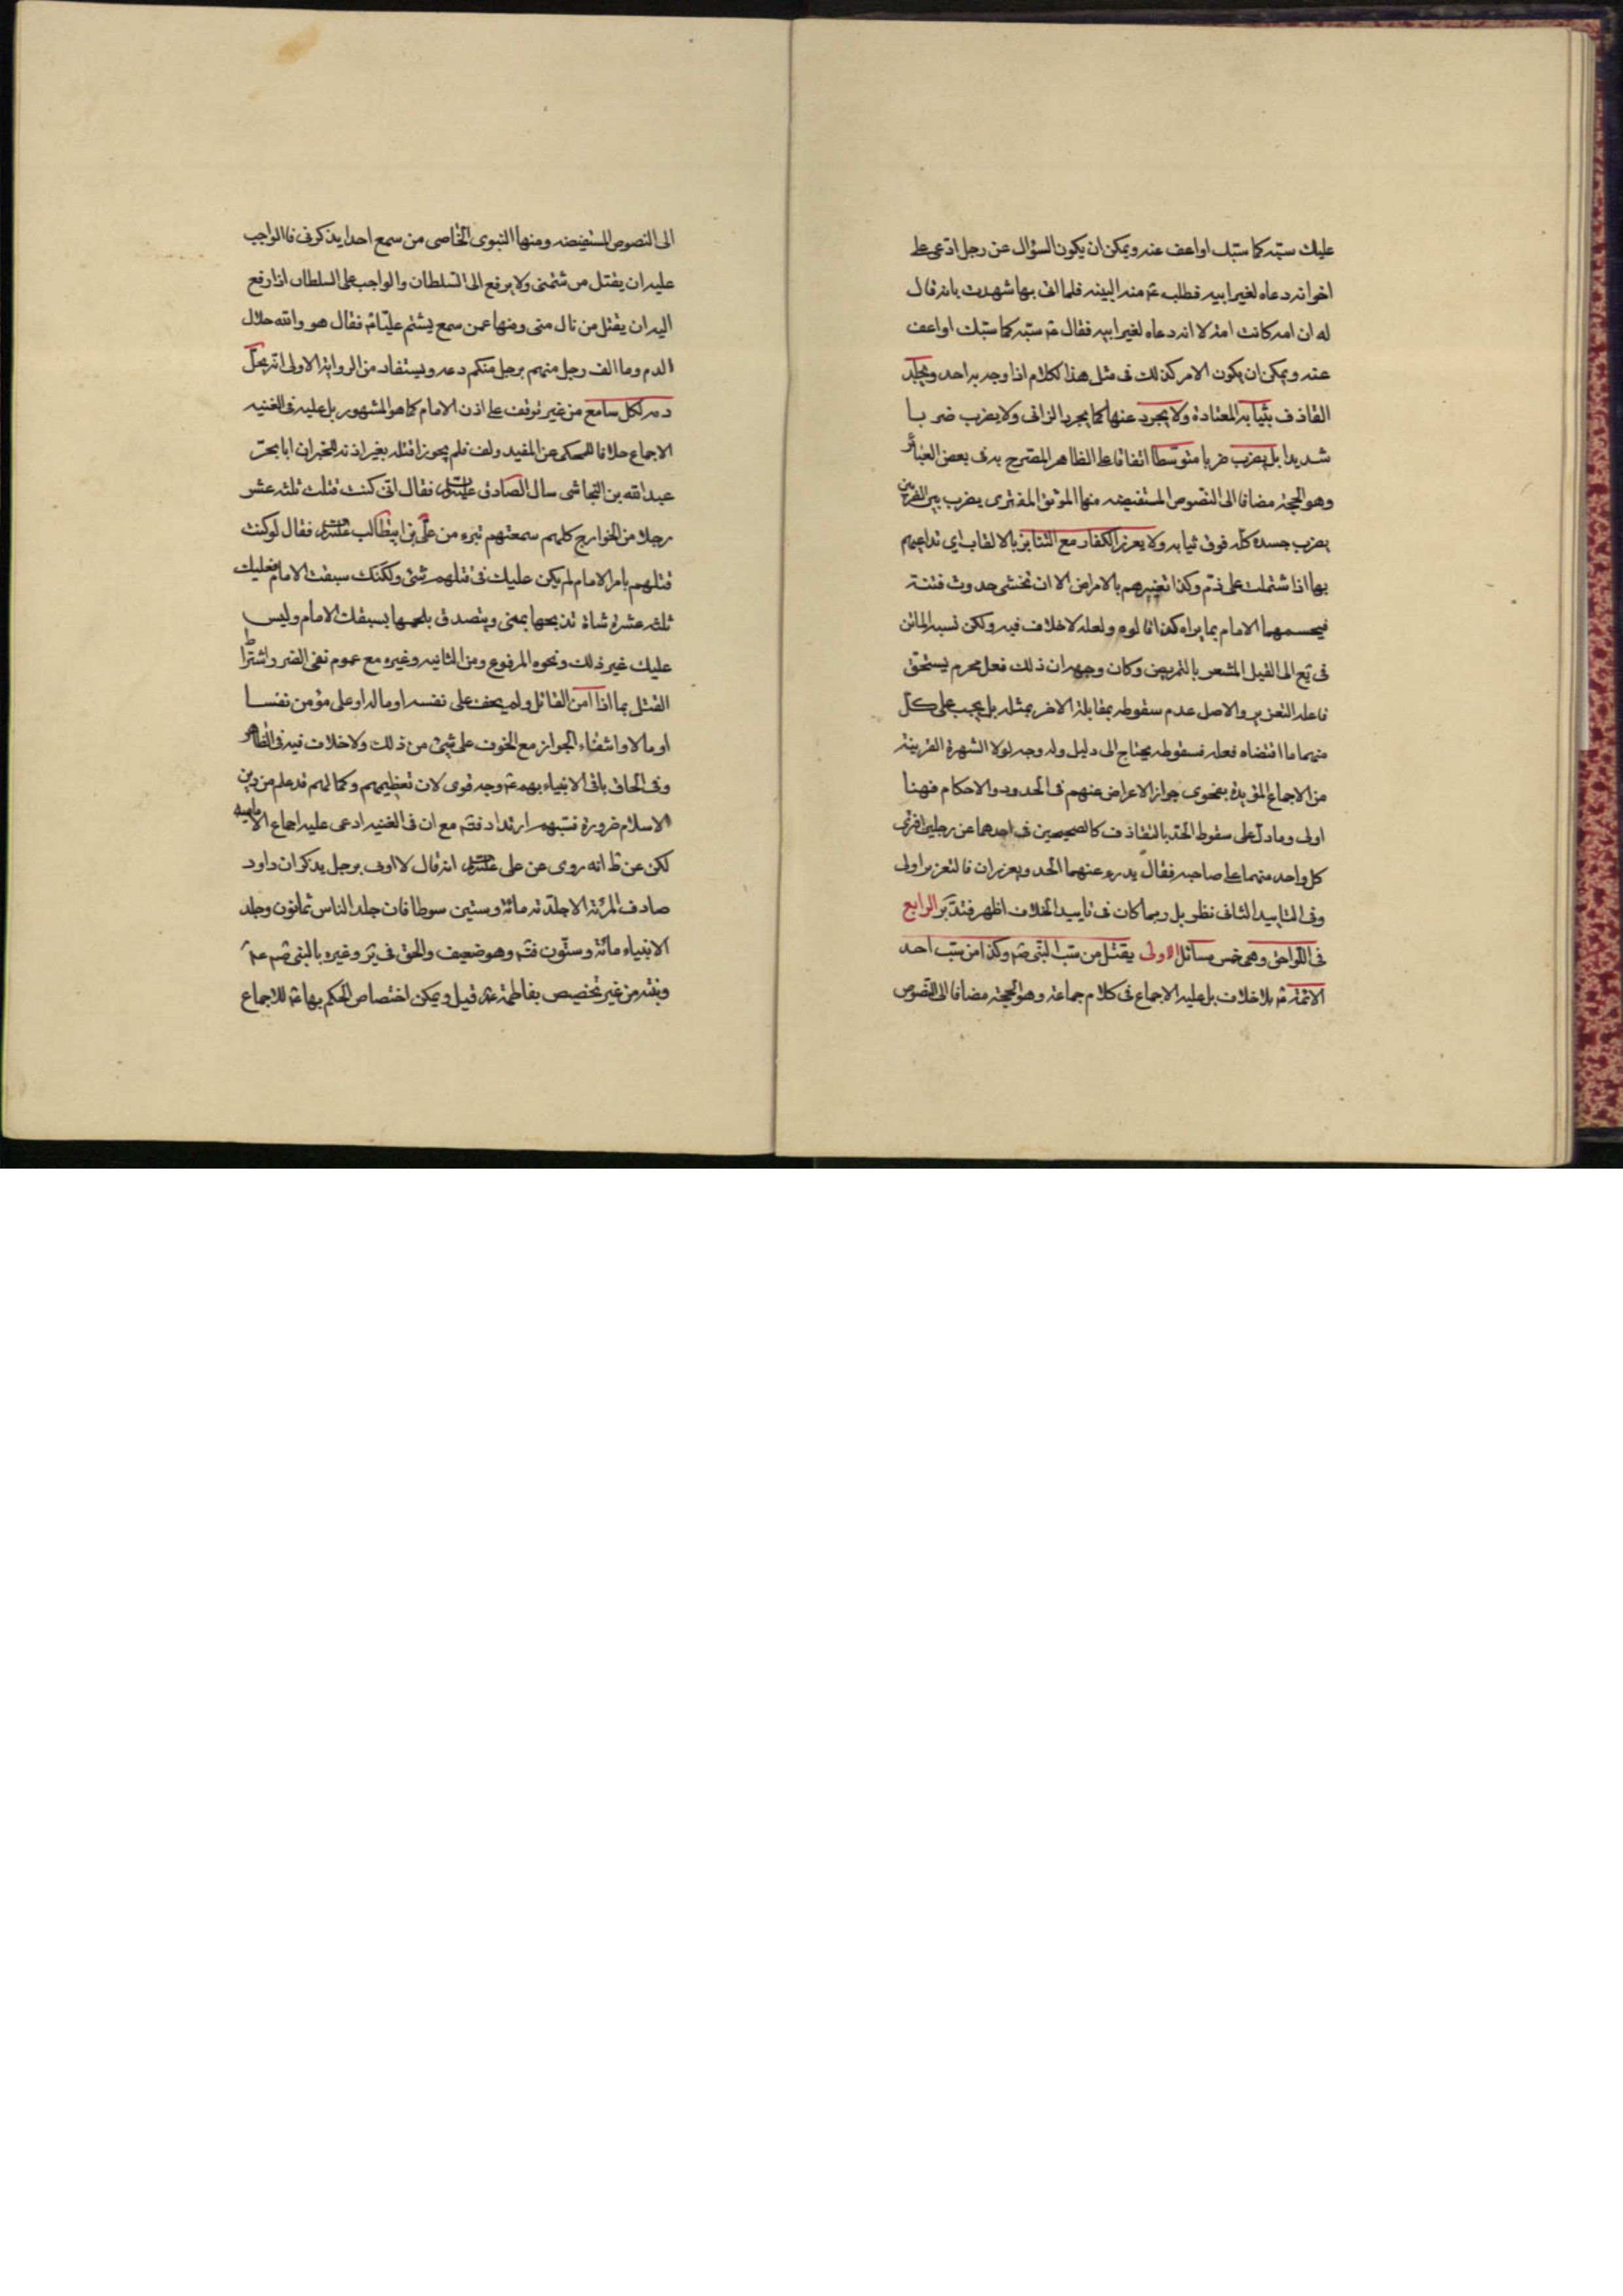 عليك سبّه كما سبّك او اعف عنه ويمكن ان يكون السؤال عن رجل ادّعى على
اخر انه دعاه لغير ابيه فطلب ع منه البينه فلما اتى بها شهدت بانه قال
له ان امه كانت امة لا انه دعاه لغير ابيه فقال ع سبّه كما سبّك او اعف
عنه ويمكن ان يكون الامر كذلك فى مثل هذا الكلام اذا وجه به احد ويجلد
القاذف بثيابه المعتادة ولا يجرد عنها كما يجرد الزانى ولا يضرب ضربا
شديدا بل يضرب ضربا متوسّطا اتفاقا على الظاهر المصّرح به فى بعض العبائر
وهو الحجة مضافا الى النّصوص المستفيضه منها الموثق المفترى يضرب بين الضربين
يضرب جسده كلّه فوق ثيابه ولا يعزر الكفار مع التنابز بالالقاب اى تداعيهم
بها اذا شتملت على ذمّ وكذا تعييرهم بالامراض الا ان تخشى حدوث فتنة
فيحسمهما الامام بما يراه كذا قالوه ولعله لا خلاف فيه ولكن نسبه الماتن
فى يع الى القيل المشعر بالتمريض وكان وجهه ان ذلك فعل محرم يستحق
فاعله التعزير والاصل عدم سقوطه بمقابلة الاخر بمثله بل يجب على كلّ
منهما ما اقتضاه فعله فسقوطه يحتاج الى دليل وله وجه لولا الشهرة القريبة
من الاجماع المؤيدة بفحوى جواز الاعراض عنهم فى الحدود والاحكام فهنا
اولى وما دلّ على سقوط الحدّ بالتقاذف كالصحيحين فى احدهما عن رجلين افترى
كل واحد منهما على صاحبه فقال يدرء عنهما الحد ويعزران فالتعزير اولى
وفى التاييد الثانى نظر بل ربما كان فى تاييد الخلاف اظهر فتدبّر الرابع
فى اللّواحق وهى خمس مسائل الاولى يقتل من سبّ النّبى ص وكذا من سبّ احد
الائمّة ع بلا خلاف بل عليه الاجماع فى كلام جماعة وهو الحجة مضافا الى النّصوص
الى النصوص المستفيضه ومنها النبوى الخاصى من سمع احدا يذكرنى فالواجب
عليه ان يقتل من شتمنى ولا يرفع الى السّلطان والواجب على السلطان اذا رفع
اليه ان يقتل من نال منى ومنها عمن سمع يشتم عليّا ع فقال هو والله حلال
الدم وما الف رجل منهم برجل منكم دعه ويستفاد من الرواية الاولى انه يحلّ
دمه لكل سامع من غير توقف على اذن الامام كما هو المشهور بل عليه فى الغنيه
الاجماع خلافا للمحكى عن المفيد ولف فلم يجوزا قتله بغير اذنه للخبر ان ابا بحر
عبد الله بن النجاشى سال الصادق علیه السلام فقال انى كنت قتلت ثلثه عشر
رجلا من الخوارج كلهم سمعتهم تبرء من علّى بن ابيطالب علیه السلام فقال لو كنت
قتلهم بامر الامام لم يكن عليك فى قتلهم شئ ولكنّك سبقت الامام فعليك
ثلثه عشرة شاة تذبحها بمنى ويتصدق بلحمها بسبقك الامام وليس
عليك غير ذلك ونحوه المرفوع ومن الثانيه وغيره مع عموم نفى الضرر واشتراط
القتل بما اذا امن القاتل ولم يخف على نفسه او ماله او على مؤمن نفسا
او مالا وانتفاء الجواز مع الخوف على شئ من ذلك ولا خلاف فيه فى الظاهر
وفى الحاق باقى الانبياء بهم ع وجه قوى لان تعظيمهم وكمالهم قد علم من دين
الاسلام ضرورة فسبّهم ارتداد فتم مع ان فى الغنيه ادعى عليه اجماع الاماميه
لكن عن ط انه روى عن على علیه السلام انه قال لا اوتى برجل يذكر ان داود
صادف المرئة الا جلدّته مائة وستين سوطا فان جلد الناس ثمانون وجلد
الانبياء مائة وستّون فتم وهو ضعيف والحق فى ير وغيره بالنبى ص امه
وبنته من غير تخصيص بفاطمة ع قيل ويمكن اختصاص الحكم بها ع للاجماع